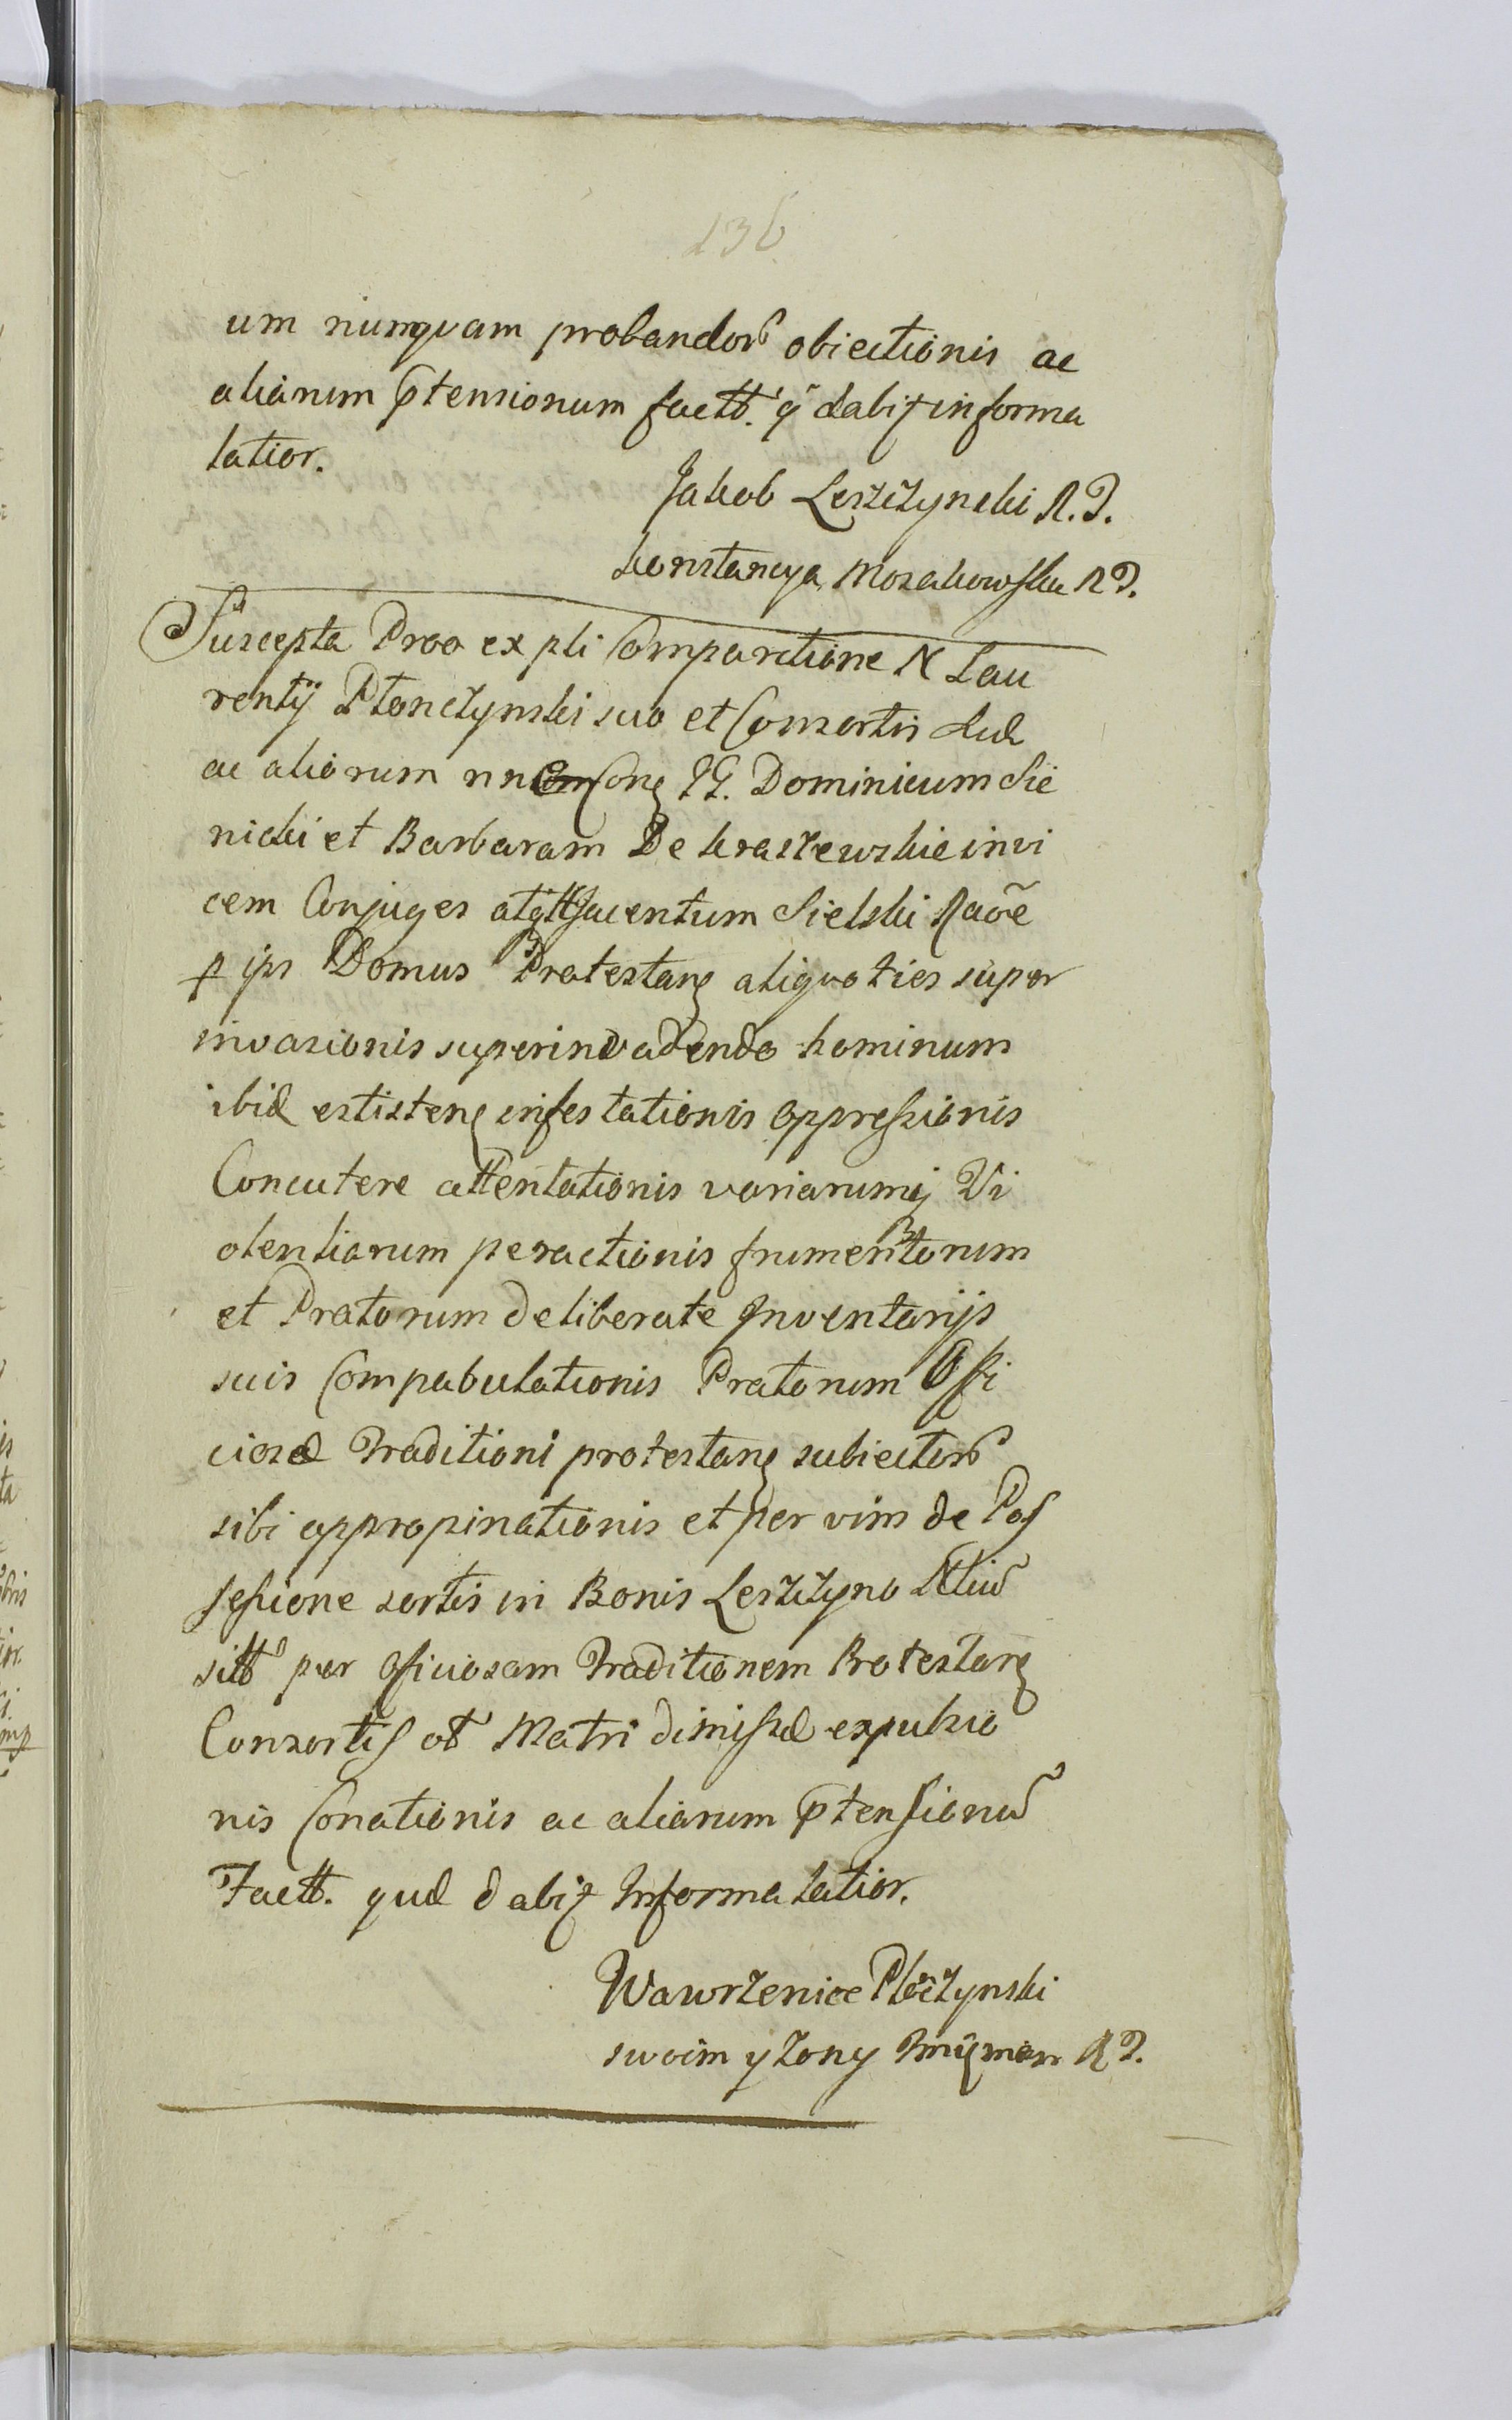 136
um nunquam probandor obiectionis ac
aliarum ptensionum factt. q dabit informa
latior.
Jakob Leszczynski R.P.
konstancya Mozakowska RP.
Suscepta Prao ex pli Comparitione N Lau
rentij Płonczynski suo et Consortis Lud
ac aliorum nn Con GG. Dominicum Sie
nicki et Barbaram De kraszewskie invi
cem Conjuges atq Hyacentum Sielski Raõe
p ips Domus Protestan aliquoties super
invasionis superinvadendo hominum
ibid existen infestationis oppressionis
Concutere attentationis variarumq Vi
olentiarum peractionis frumentorum
et Pratorum deliberate Inventarijs
suis Compabulationis Pratorum Offi
ciosae Traditioni protestan subiector
sibi appropinationis et per vim de Pos
sessione sortis in Bonis Leszczyno
sitt per oficiosam Traditionem Protestan
Consortis ob Matri dimissae expulsio
nis Conationis ac aliarum ptensionũ
Factt. qud dabit Informa latior.
Wawrzeniec Płoczynski
swoim y Zony Imięniem RP.